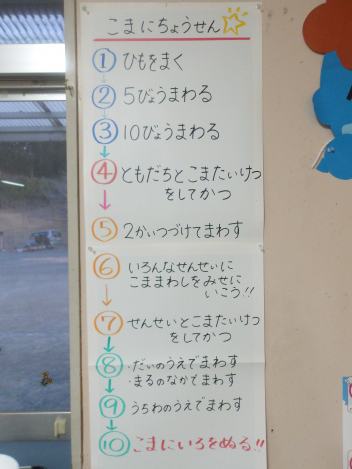 こまにちょうせん
① ひもをまく
② 5びょうまわる
③ 10びょうまわる
④ ともだちとこまたいけつ
をしてかつ
⑤ 2かいつづけてまわす
⑥ いろんなせんせいに
こままわしをみせに
いこう!!
⑦ せんせいとこまたいけつ
をしてかつ
⑧ ・だいのうえでまわす
・まるのなかでまわす
⑨ うちわのうえでまわす
⑩ こまにいろをぬる!!